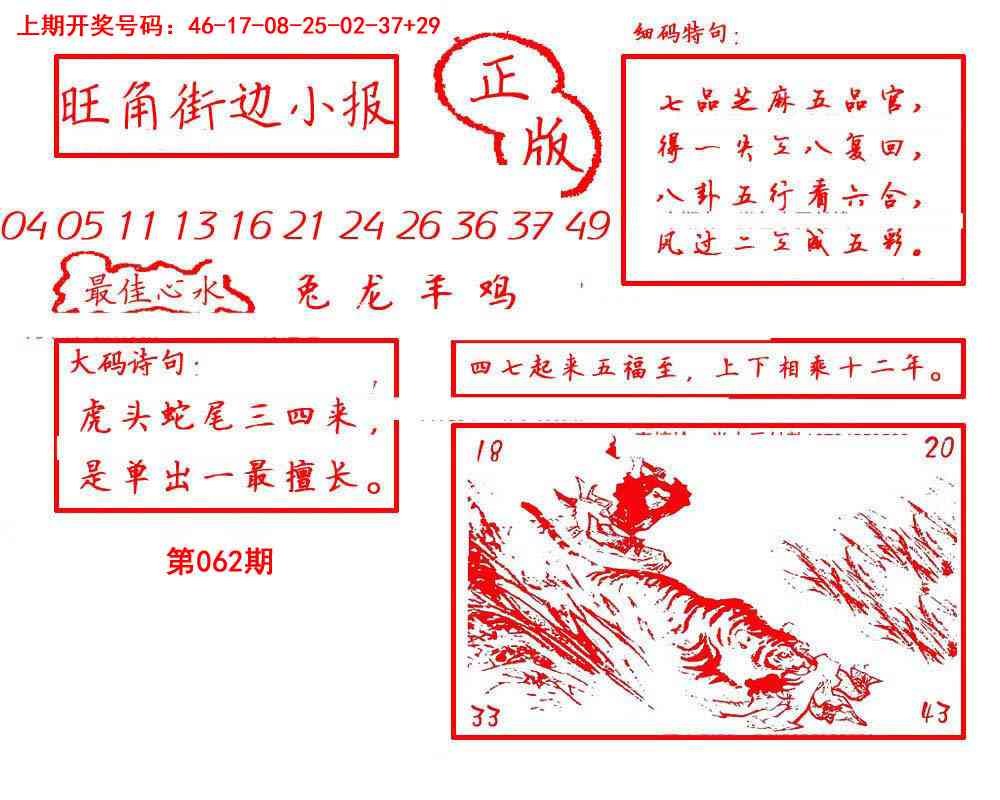 上期开奖号码：46-17-08-25-02-37+29
旺角街边小报
正版
细码特句：
七品芝麻五品官，
得一失三八复回，
八卦五行看六合，
风过二三成五彩。
04 05 11 13 16 21 24 26 36 37 49
最佳心水
兔龙羊鸡
大码诗句：
虎头蛇尾三四来，
是单出一最擅长。
四七起来五福至，上下相乘十二年。
第062期
18
20
33
43